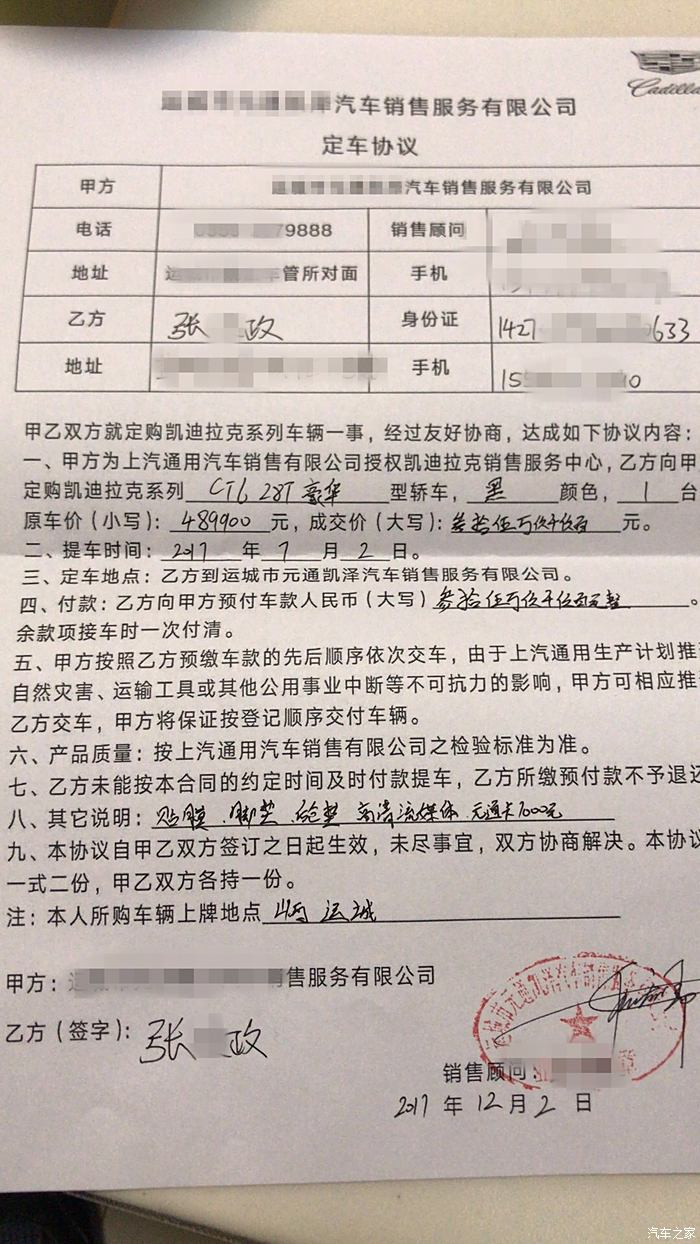 Cadilla
汽车销售服务有限公司
定车协议
甲方 汽车销售服务有限公司
电话 79888 销售顾问
地址 管所对面 手机
乙方 张 政 身份证 1427 0633
地址 手机 15 10
甲乙双方就定购凯迪拉克系列车辆一事，经过友好协商，达成如下协议内容：
一、甲方为上汽通用汽车销售有限公司授权凯迪拉克销售服务中心，乙方向甲
定购凯迪拉克系列 CT6 28T 豪华 型轿车，黑 颜色，1 台
原车价（小写）：489900 元，成交价（大写）：叁拾伍万伍仟伍佰 元。
二、提车时间：2017 年 7 月 2 日。
三、定车地点：乙方到运城市元通凯泽汽车销售服务有限公司。
四、付款：乙方向甲方预付车款人民币（大写）叁拾伍万伍仟伍佰元整 。
余款项接车时一次付清。
五、甲方按照乙方预缴车款的先后顺序依次交车，由于上汽通用生产计划推
自然灾害、运输工具或其他公用事业中断等不可抗力的影响，甲方可相应推
乙方交车，甲方将保证按登记顺序交付车辆。
六、产品质量：按上汽通用汽车销售有限公司之检验标准为准。
七、乙方未能按本合同的约定时间及时付款提车，乙方所缴预付款不予退还
八、其它说明：贴膜、脚垫、 高清流媒体 元通卡1000元
九、本协议自甲乙双方签订之日起生效，未尽事宜，双方协商解决。本协议
一式二份，甲乙双方各持一份。
注：本人所购车辆上牌地点 运城
甲方： 售服务有限公司
乙方（签字）：张 政
运城市元通凯泽汽车销售
销售顾问：
2017 年 12 月 2 日
汽车之家